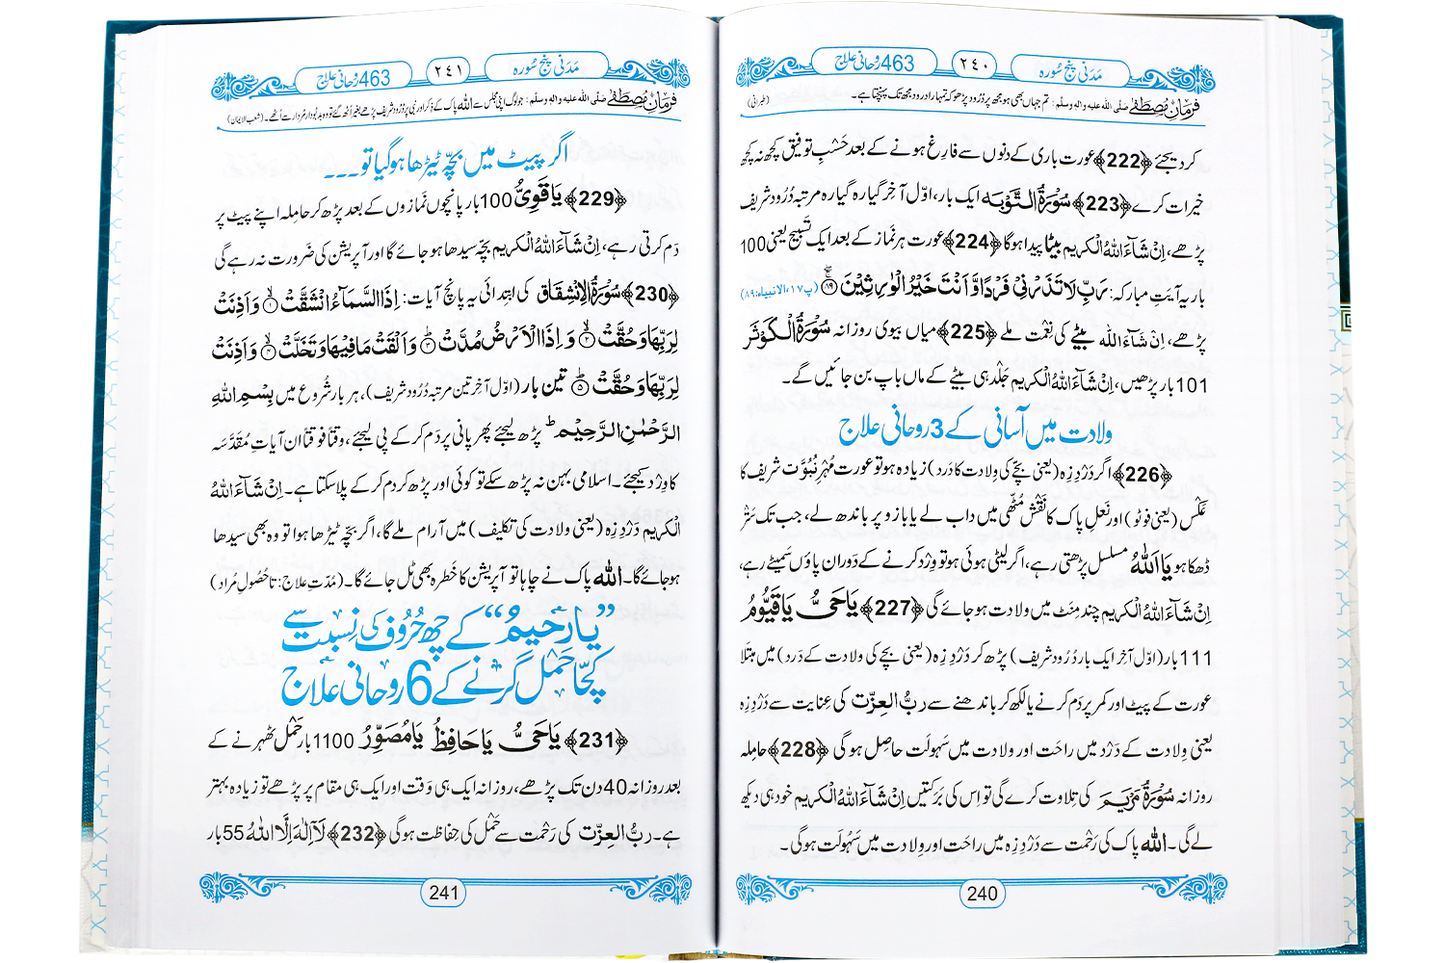 مَدَنی پنج سُورہ
٢٤٠
463 رُوحانی عِلاج
فرمانِ مُصطَفٰے صلی اللہ علیہ والہ وسلم : تم جہاں بھی ہو مجھ پر دُرُود پڑھو کہ تمہارا دُرود مجھ تک پہنچتا ہے۔ (طبرانی)
کر دیجئے ﴿222﴾ عورت باری کے دنوں سے فارِغ ہونے کے بعد حَسْبِ توفیق کچھ نہ کچھ
خیرات کرے ﴿223﴾ سُوْرَۃُ التَّوْبَہ ایک بار، اوّل آخِر گیارہ گیارہ مرتبہ دُرُود شریف
پڑھے، اِنْ شَآءَ اللہُ الْکَرِیم بیٹا پیدا ہوگا ﴿224﴾ عورت ہر نَماز کے بعد ایک تَسبیح یعنی 100
بار یہ آیتِ مبارکہ: رَبِّ لَا تَذَرْنِیْ فَرْدًا وَّ اَنْتَ خَیْرُ الْوٰرِثِیْنَ ﴿٨٩﴾ (پ١٧، الانبیاء: ٨٩)
پڑھے، اِنْ شَآءَ اللہ بیٹے کی نِعْمت ملے ﴿225﴾ میاں بیوی روزانہ سُوْرَۃُ الْکَوْثَر
101 بار پڑھیں، اِنْ شَآءَ اللہُ الْکَرِیم جَلْد ہی بیٹے کے ماں باپ بن جائیں گے۔
وِلادت میں آسانی کے 3 روحانی عِلاج
﴿226﴾ اگر دَرْدِ زِہ (یعنی بچّے کی وِلادت کا دَرد) زیادہ ہو تو عورت مُہْرِ نُبُوَّت شریف کا
عَکْس (یعنی فوٹو) اور نَعلِ پاک کا نَقْش مُٹّھی میں داب لے یا بازو پر باندھ لے، جب تک سَتْر
ڈھکا ہو یَا اَللہُ مسلسل پڑھتی رہے، اگر لیٹی ہوئی ہو تو وِرْد کرنے کے دَوران پاؤں سَمیٹے رہے،
اِنْ شَآءَ اللہُ الْکَرِیم چند مِنَٹ میں ولادت ہو جائے گی ﴿227﴾ یَا حَیُّ یَا قَیُّوْمُ
111 بار (اوّل آخر ایک بار دُرُود شریف) پڑھ کر دَرْدِ زِہ (یعنی بچے کی ولادت کے دَرد) میں مبتَلا
عورت کے پیٹ اور کمر پر دَم کرنے یا لکھ کر باندھنے سے ربُّ العِزّت کی عِنایت سے دَرْدِ زِہ
یعنی وِلادت کے دَرْد میں راحت اور ولادت میں سَہولت حاصِل ہوگی ﴿228﴾ حامِلہ
روزانہ سُوْرَۃُ مَرْیَم کی تِلاوت کرے گی تو اِس کی بَرَکتیں اِنْ شَآءَ اللہُ الْکَرِیم خود ہی دیکھ
لے گی۔ اللہ پاک کی رَحْمت سے دَرْدِ زِہ میں راحت اور وِلادت میں سَہُولت ہوگی۔
240
مَدَنی پنج سُورہ
٢٤١
463 رُوحانی عِلاج
فرمانِ مُصطَفٰے صلی اللہ علیہ والہ وسلم : جو لوگ اپنی مجلس سے اللہ پاک کے ذِکر اور نبی پر دُرُود شریف پڑھے بغیر اُٹھ گئے تو وہ بدبُودار مُردار سے اُٹھے۔ (شعب الایمان)
اگر پیٹ میں بچّہ ٹیڑھا ہو گیا تو۔۔۔
﴿229﴾ یَا قَوِیُّ 100 بار پانچوں نَمازوں کے بعد پڑھ کر حامِلہ اپنے پیٹ پر
دَم کرتی رہے، اِنْ شَآءَ اللہُ الْکَرِیم بچّہ سیدھا ہو جائے گا اور آپریشن کی ضَرورت نہ رہے گی
﴿230﴾ سُوْرَۃُ الْاِنْشِقَاق کی ابتدائی یہ پانچ آیات: اِذَا السَّمَآءُ انْشَقَّتْ ﴿١﴾ وَ اَذِنَتْ
لِرَبِّهَا وَ حُقَّتْ ﴿٢﴾ وَ اِذَا الْاَرْضُ مُدَّتْ ﴿٣﴾ وَ اَلْقَتْ مَا فِیْهَا وَ تَخَلَّتْ ﴿٤﴾ وَ اَذِنَتْ
لِرَبِّهَا وَ حُقَّتْ ﴿٥﴾ تین بار (اوّل آخر تین مرتبہ دُرُود شریف)، ہر بار شُروع میں بِسْمِ اللہِ
الرَّحْمٰنِ الرَّحِیْمِ پڑھ لیجئے پھر پانی پر دَم کر کے پی لیجئے، وقتاً فوقتاً ان آیاتِ مُقَدَّسَہ
کا وِرْد کیجئے۔ اسلامی بہن نہ پڑھ سکے تو کوئی اور پڑھ کر دم کر کے پلا سکتا ہے۔ اِنْ شَآءَ اللہُ
الْکَرِیم دَرْدِ زِہ (یعنی ولادت کی تکلیف) میں آرام ملے گا، اگر بچّہ ٹیڑھا ہوا تو وہ بھی سیدھا
ہو جائے گا۔ اللہ پاک نے چاہا تو آپریشن کا خطرہ بھی ٹل جائے گا۔ (مُدّتِ علاج: تا حُصُولِ مُراد)
”یَا رَحِیْمُ“ کے چھ حُرُوف کی نِسبت سے
کچّا حَمْل گرنے کے 6 روحانی عِلاج
﴿231﴾ یَا حَیُّ یَا حَافِظُ یَا مُصَوِّرُ 1100 بار حَمْل ٹھہرنے کے
بعد روزانہ 40 دن تک پڑھے، روزانہ ایک ہی وَقت اور ایک ہی مقام پر پڑھے تو زیادہ بہتر
ہے۔ ربُّ العِزّت کی رَحْمت سے حَمْل کی حِفاظت ہوگی ﴿232﴾ لَآ اِلٰہَ اِلَّا اللہُ 55 بار
241